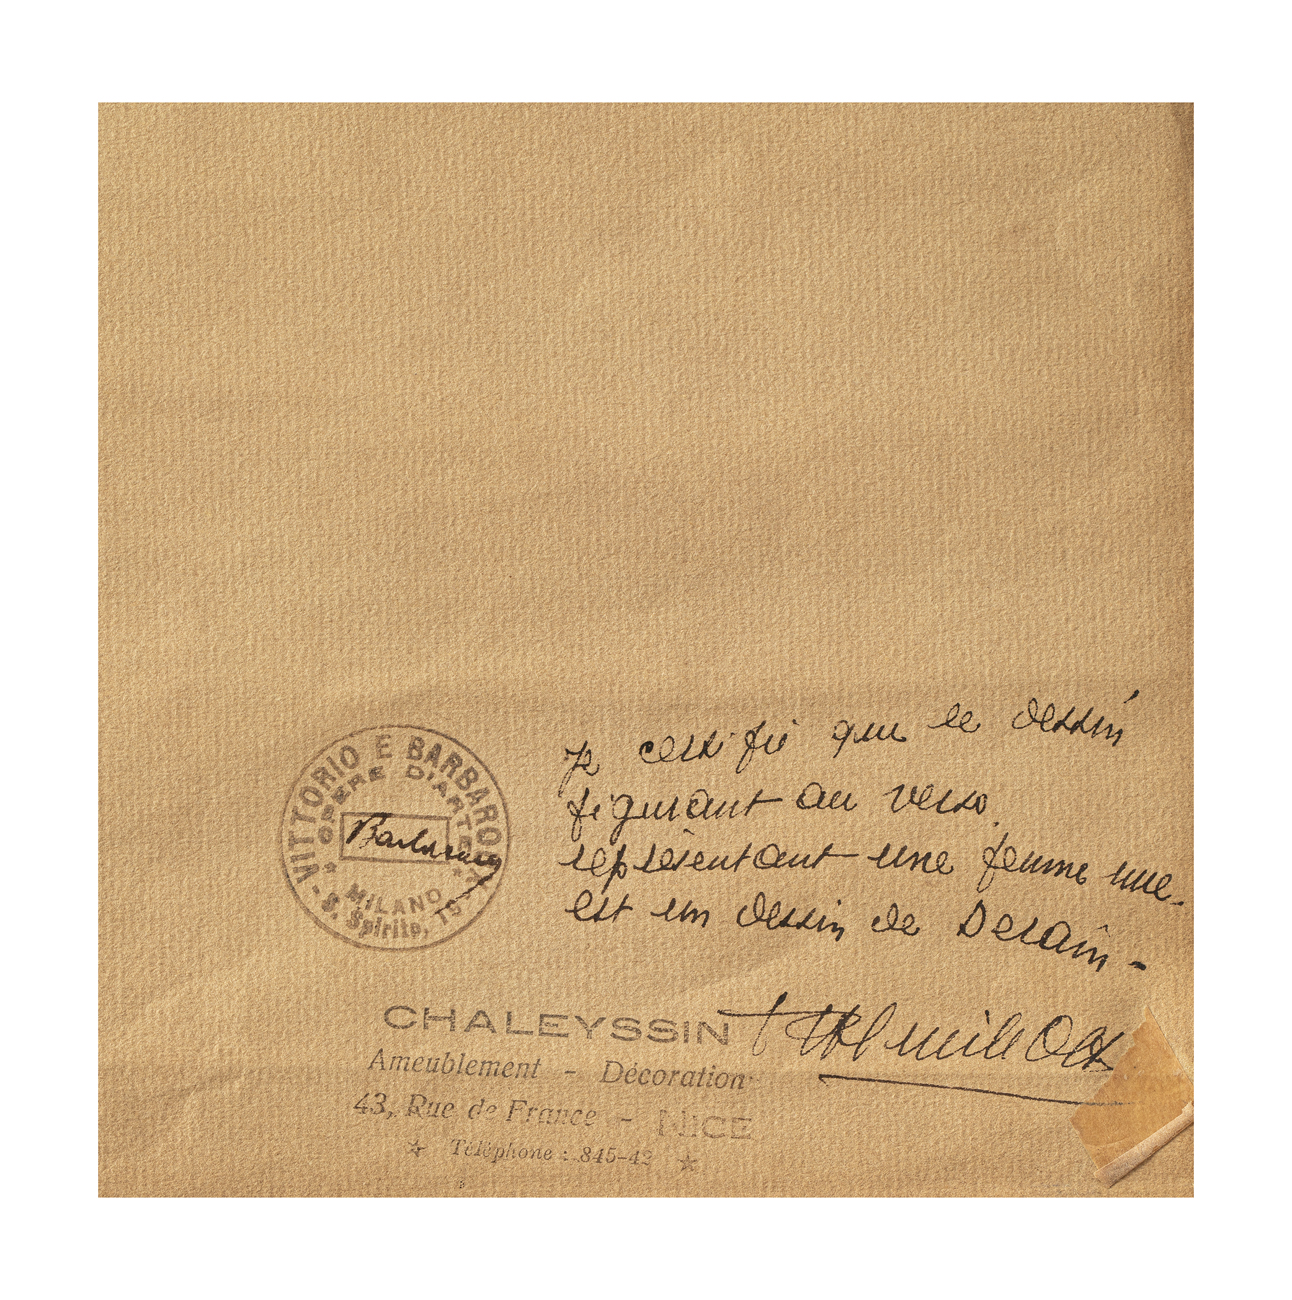 VITTORIO E BARBARO
OPERE D'ARTE
MILANO
S. Spirito, 19
je certifie que le dessin
figurant au verso
représentant une femme nue
est un dessin de Derain -
CHALEYSSIN
Ameublement - Décoration
43, Rue de France - NICE
Téléphone : 845-42